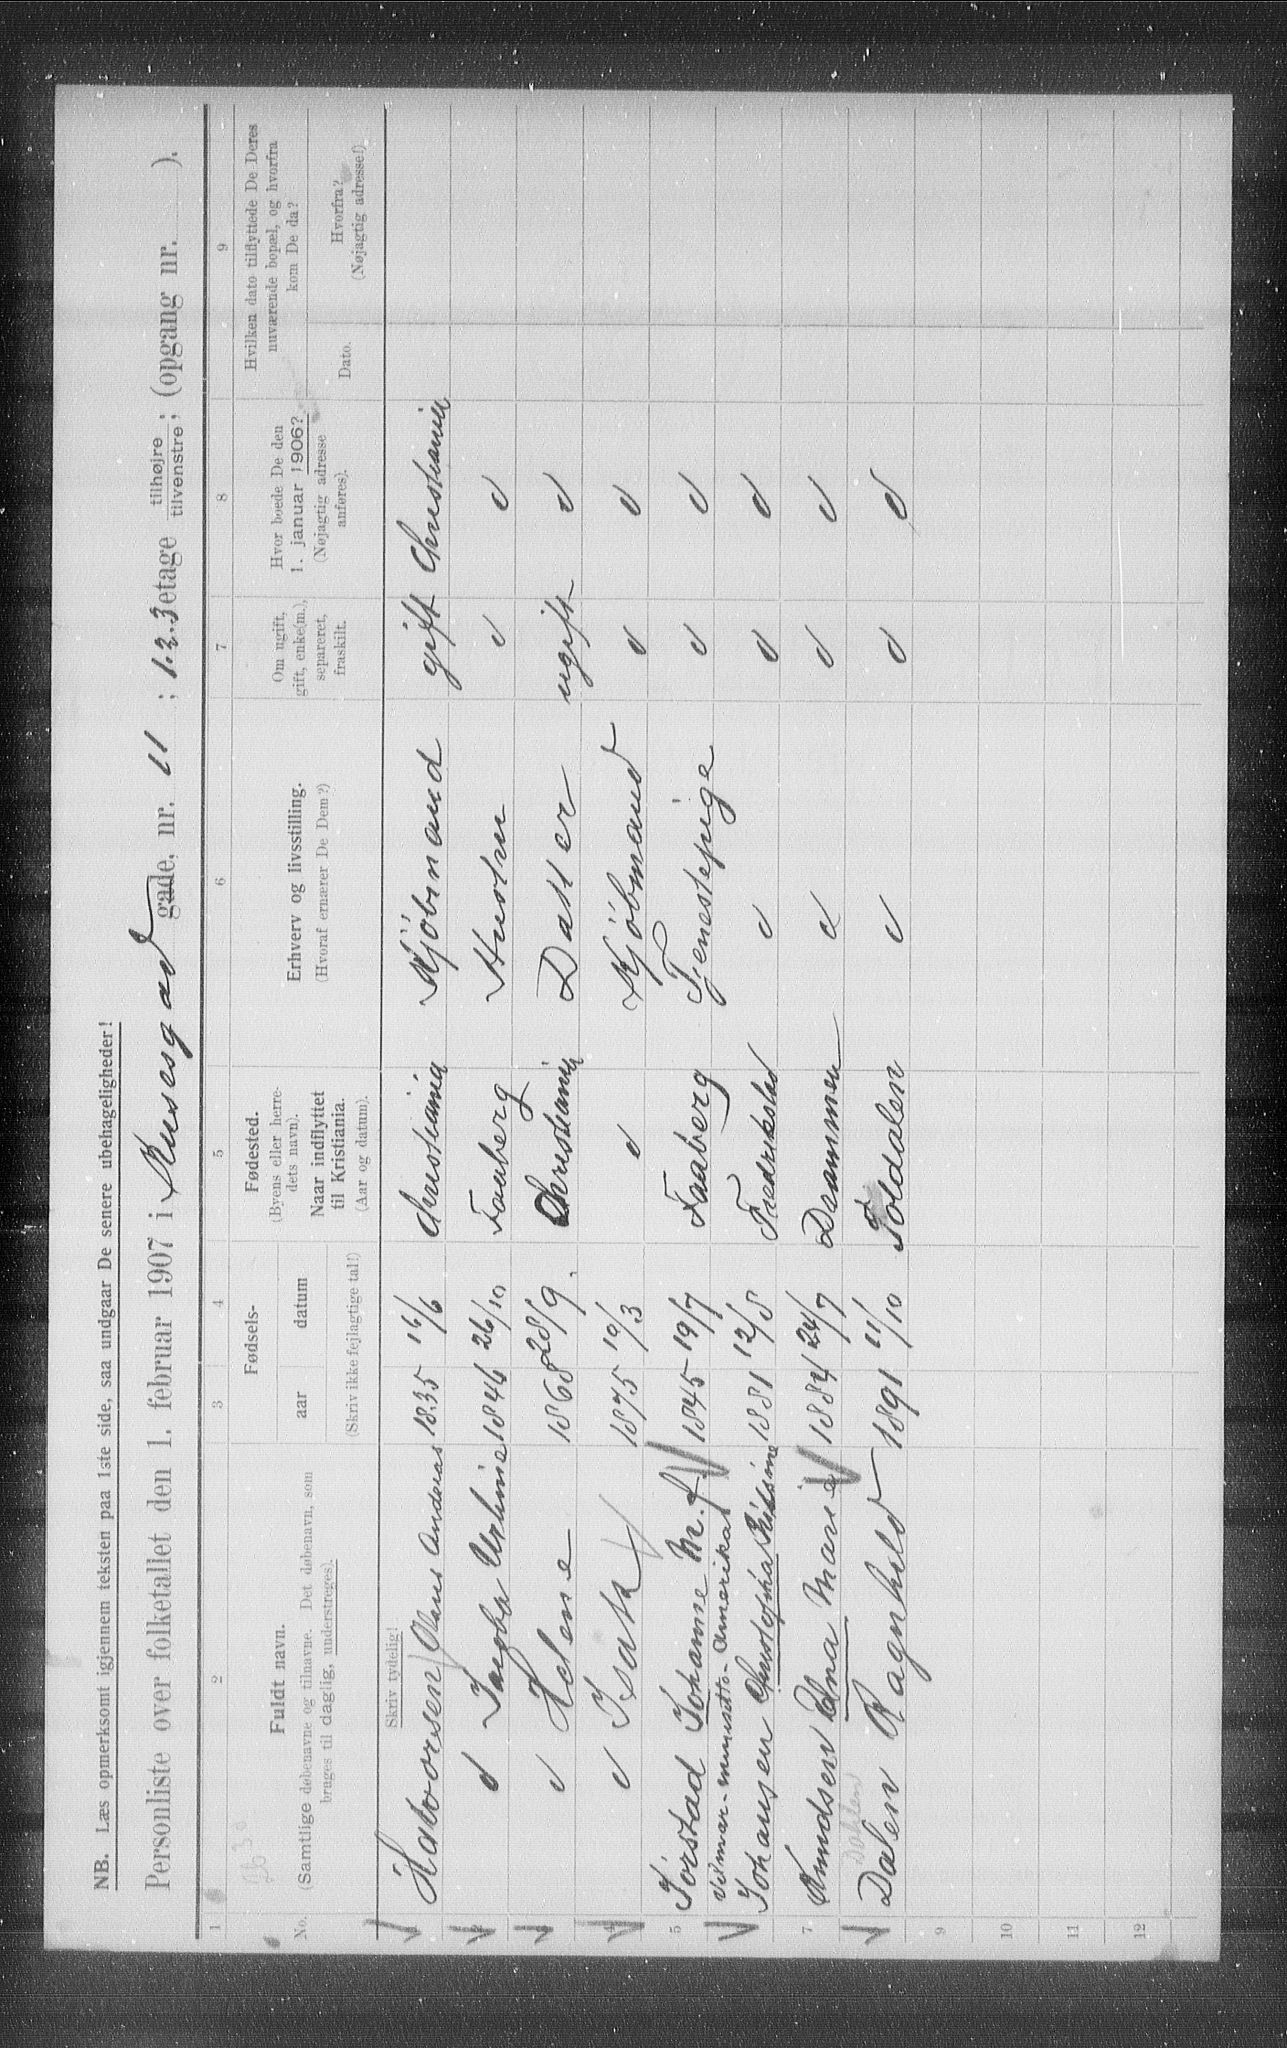 NB. Læs opmerksomt igjennem teksten paa 1ste side, saa undgaar De senere ubehageligheder!
Personliste over folketallet den 1. februar 1907 i Rusesgad gade, nr. 11 ; 1.2.3 etage tilhøjre tilvenstre; (opgang nr. ).
1 2 3 4 5 6 7 8 9
No.
Fuldt navn.
(Samtlige døbenavne og tilnavne. Det døbenavn, som
bruges til daglig, understreges).
Skriv tydelig!
Fødsels-
aar datum
(Skriv ikke fejlagtige tal!)
Fødested.
(Byens eller herre-
dets navn).
Naar indflyttet
til Kristiania.
(Aar og datum).
Erhverv og livsstilling.
(Hvoraf ernærer De Dem?)
Om ugift,
gift, enke(m.),
separeret,
fraskilt.
Hvor boede De den
1. januar 1906?
(Nøjagtig adresse
anføres).
Hvilken dato tilflyttede De Deres
nuværende bopæl, og hvorfra
kom De da?
Dato.
Hvorfra?
(Nøjagtig adresse!)
Halvorsen Olaus Andreas 1835 16/6 Christiania Kjöbmand gift Christiania
2 d Ingba 1846 26/10 Faaberg Hustru d d
3 d Helene 1868 28/9 Christiania Datter ugift d
4 d Isak 1875 19/3 d Kjöbmand d d
5 Johanne M. f. 1845 19/7 Faaberg Tjenestepige d d
Amerika
Johansen 1881 12/8 Fredrikstad d d d
7. Amundsen Edna Marie 1884 24/7 Drammen d d d
Dahlen
Dalen Ragnhild 1891 11/10 Foldalen d d d
9
10
11
12